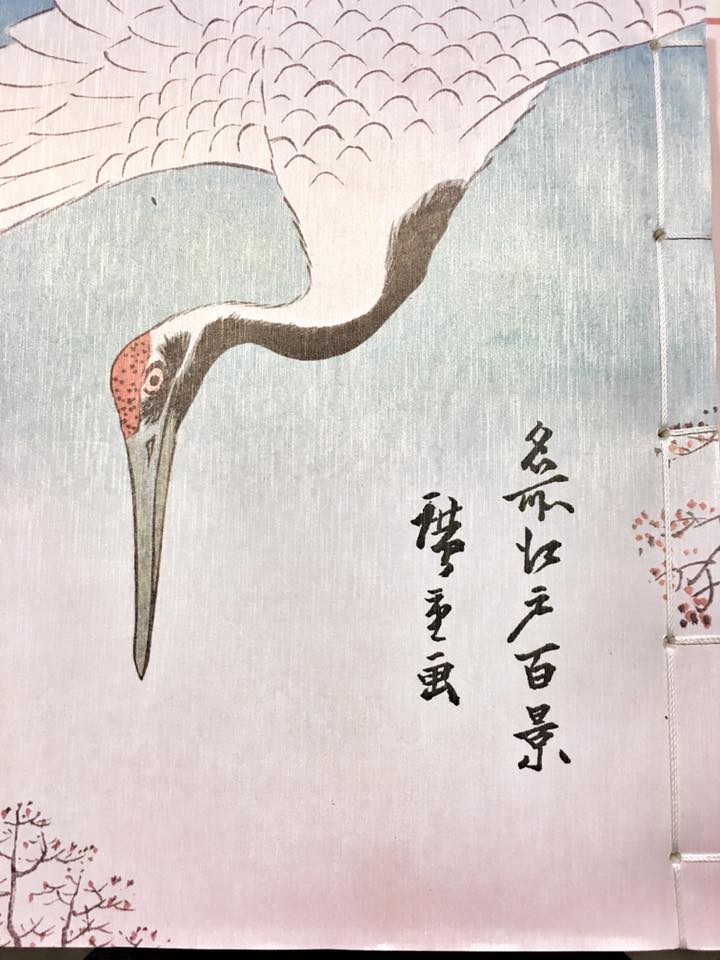 名所江戸百景
廣重画